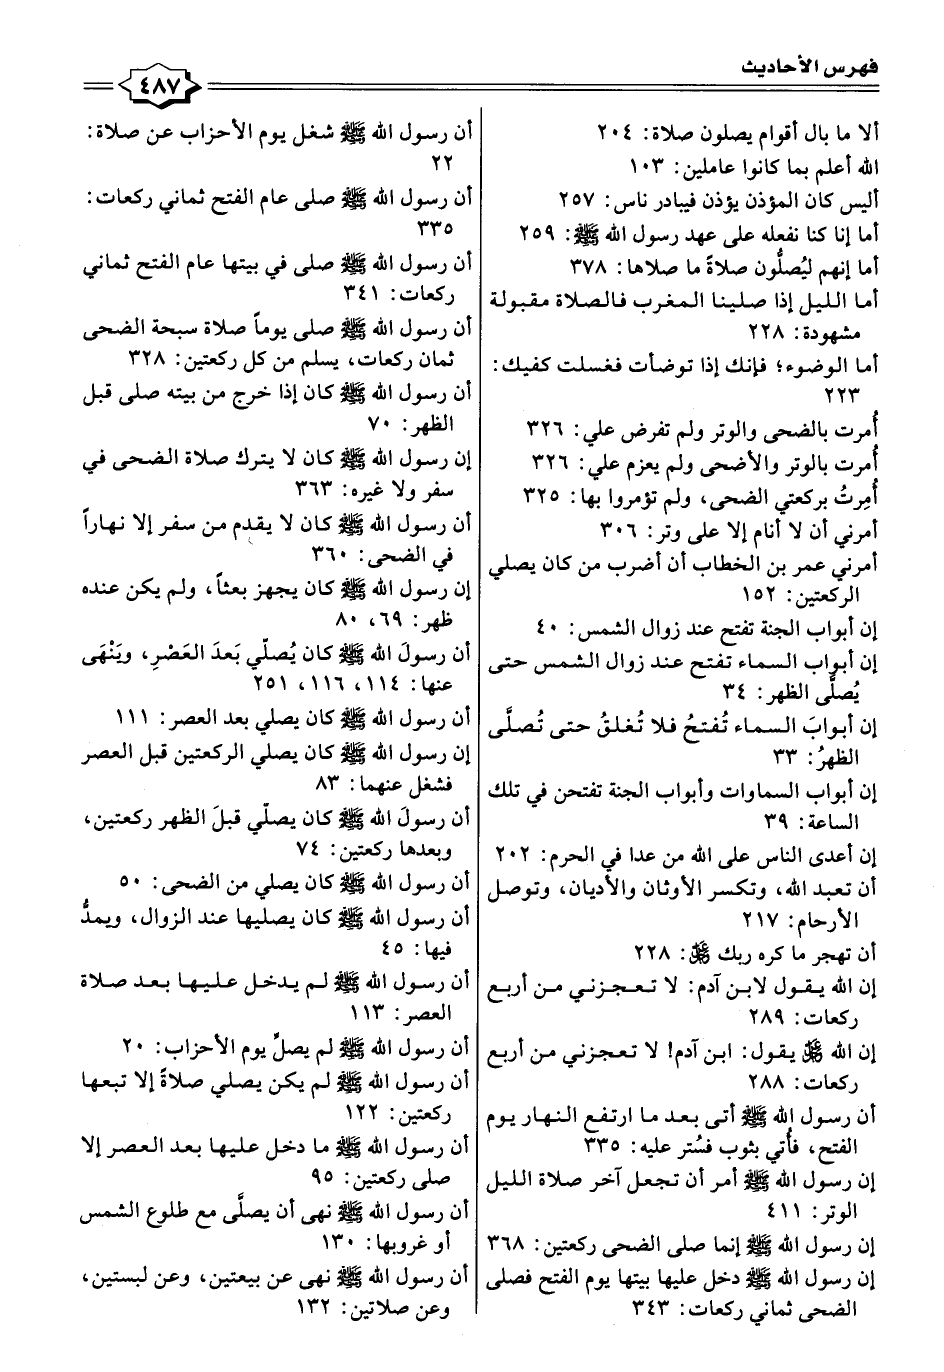 فهرس الأحاديث
٤٨٧
ألا ما بال أقوام يصلون صلاة: ٢٠٤
الله أعلم بما كانوا عاملين: ١٠٣
أليس كان المؤذن يؤذن فيبادر ناس: ٢٥٧
أما إنا كنا نفعله على عهد رسول الله ﷺ: ٢٥٩
أما إنهم ليُصلُّون صلاةً ما صلاها: ٣٧٨
أما الليل إذا صلينا المغرب فالصلاة مقبولة
مشهودة: ٢٢٨
أما الوضوء؛ فإنك إذا توضأت فغسلت كفيك:
٢٢٣
أُمرت بالضحى والوتر ولم تفرض علي: ٣٢٦
أُمرت بالوتر والأضحى ولم يعزم علي: ٣٢٦
أُمِرتُ بركعتي الضحى، ولم تؤمروا بها: ٣٢٥
أمرني أن لا أنام إلا على وتر: ٣٠٦
أمرني عمر بن الخطاب أن أضرب من كان يصلي
الركعتين: ١٥٢
إن أبواب الجنة تفتح عند زوال الشمس: ٤٠
إن أبواب السماء تفتح عند زوال الشمس حتى
يُصلَّى الظهر: ٣٤
إن أبوابَ السماء تُفتحُ فلا تُغلقُ حتى تُصلَّى
الظهرُ: ٣٣
إن أبواب السماوات وأبواب الجنة تفتحن في تلك
الساعة: ٣٩
إن أعدى الناس على الله من عدا في الحرم: ٢٠٢
أن تعبد الله، وتكسر الأوثان والأديان، وتوصل
الأرحام: ٢١٧
أن تهجر ما كره ربك ﷻ: ٢٢٨
إن الله يقول لابن آدم: لا تعجزني من أربع
ركعات: ٢٨٩
إن الله ﷻ يقول: ابن آدم! لا تعجزني من أربع
ركعات: ٢٨٨
أن رسول الله ﷺ أتى بعد ما ارتفع النهار يوم
الفتح، فأُتي بثوب فسُتر عليه: ٣٣٥
إن رسول الله ﷺ أمر أن تجعل آخر صلاة الليل
الوتر: ٤١١
إن رسول الله ﷺ إنما صلى الضحى ركعتين: ٣٦٨
إن رسول الله ﷺ دخل عليها بيتها يوم الفتح فصلى
الضحى ثماني ركعات: ٣٤٣
أن رسول الله ﷺ شغل يوم الأحزاب عن صلاة:
٢٢
أن رسول الله ﷺ صلى عام الفتح ثماني ركعات:
٣٣٥
أن رسول الله ﷺ صلى في بيتها عام الفتح ثماني
ركعات: ٣٤١
أن رسول الله ﷺ صلى يوماً صلاة سبحة الضحى
ثمان ركعات، يسلم من كل ركعتين: ٣٢٨
أن رسول الله ﷺ كان إذا خرج من بيته صلى قبل
الظهر: ٧٠
إن رسول الله ﷺ كان لا يترك صلاة الضحى في
سفر ولا غيره: ٣٦٣
أن رسول الله ﷺ كان لا يقدم من سفر إلا نهاراً
في الضحى: ٣٦٠
إن رسول الله ﷺ كان يجهز بعثاً، ولم يكن عنده
ظهر: ٦٩، ٨٠
أن رسولَ الله ﷺ كان يُصلّي بَعدَ العَصْرِ، ويَنْهَى
عنها: ١١٤، ١١٦، ٢٥١
أن رسول الله ﷺ كان يصلي بعد العصر: ١١١
إن رسول الله ﷺ كان يصلي الركعتين قبل العصر
فشغل عنهما: ٨٣
أن رسولَ الله ﷺ كان يصلّي قبلَ الظهر ركعتين،
وبعدها ركعتين: ٧٤
أن رسول الله ﷺ كان يصلي من الضحى: ٥٠
أن رسول الله ﷺ كان يصليها عند الزوال، ويمدُّ
فيها: ٤٥
أن رسول الله ﷺ لم يدخل عليها بعد صلاة
العصر: ١١٣
أن رسول الله ﷺ لم يصلِّ يوم الأحزاب: ٢٠
أن رسول الله ﷺ لم يكن يصلي صلاةً إلا تبعها
ركعتين: ١٢٢
أن رسول الله ﷺ ما دخل عليها بعد العصر إلا
صلى ركعتين: ٩٥
أن رسول الله ﷺ نهى أن يصلَّى مع طلوع الشمس
أو غروبها: ١٣٠
أن رسول الله ﷺ نهى عن بيعتين، وعن لبستين،
وعن صلاتين: ١٣٢